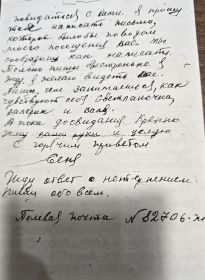 повидаться с вами. Я прошу
тебя написать письмо,
которое было бы поводом
моего посещения вас. Мы
сообразим как написать.
Только пиши быстренько. Я
жду и желаю видеть вас.
Пиши, чем занимаешься, как
чувствует себя Светланочка,
Валерик и Валя.
А пока до свидания. Крепко
жму ваши руки и целую.
С горячим приветом
Сеня
Жду ответ с нетерпением.
Пиши обо всем.
Полевая почта №82706-